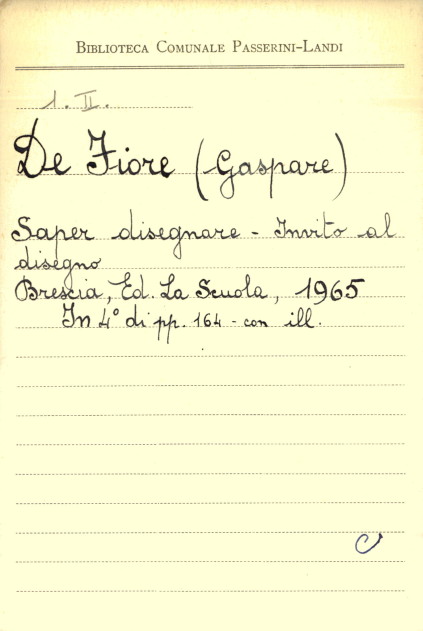 BIBLIOTECA COMUNALE PASSERINI-LANDI
1. II.
De Fiore (Gaspare)
Saper disegnare - Invito al
disegno
Brescia, Ed. La Scuola, 1965
In 4° di pp. 164 - con ill.
C